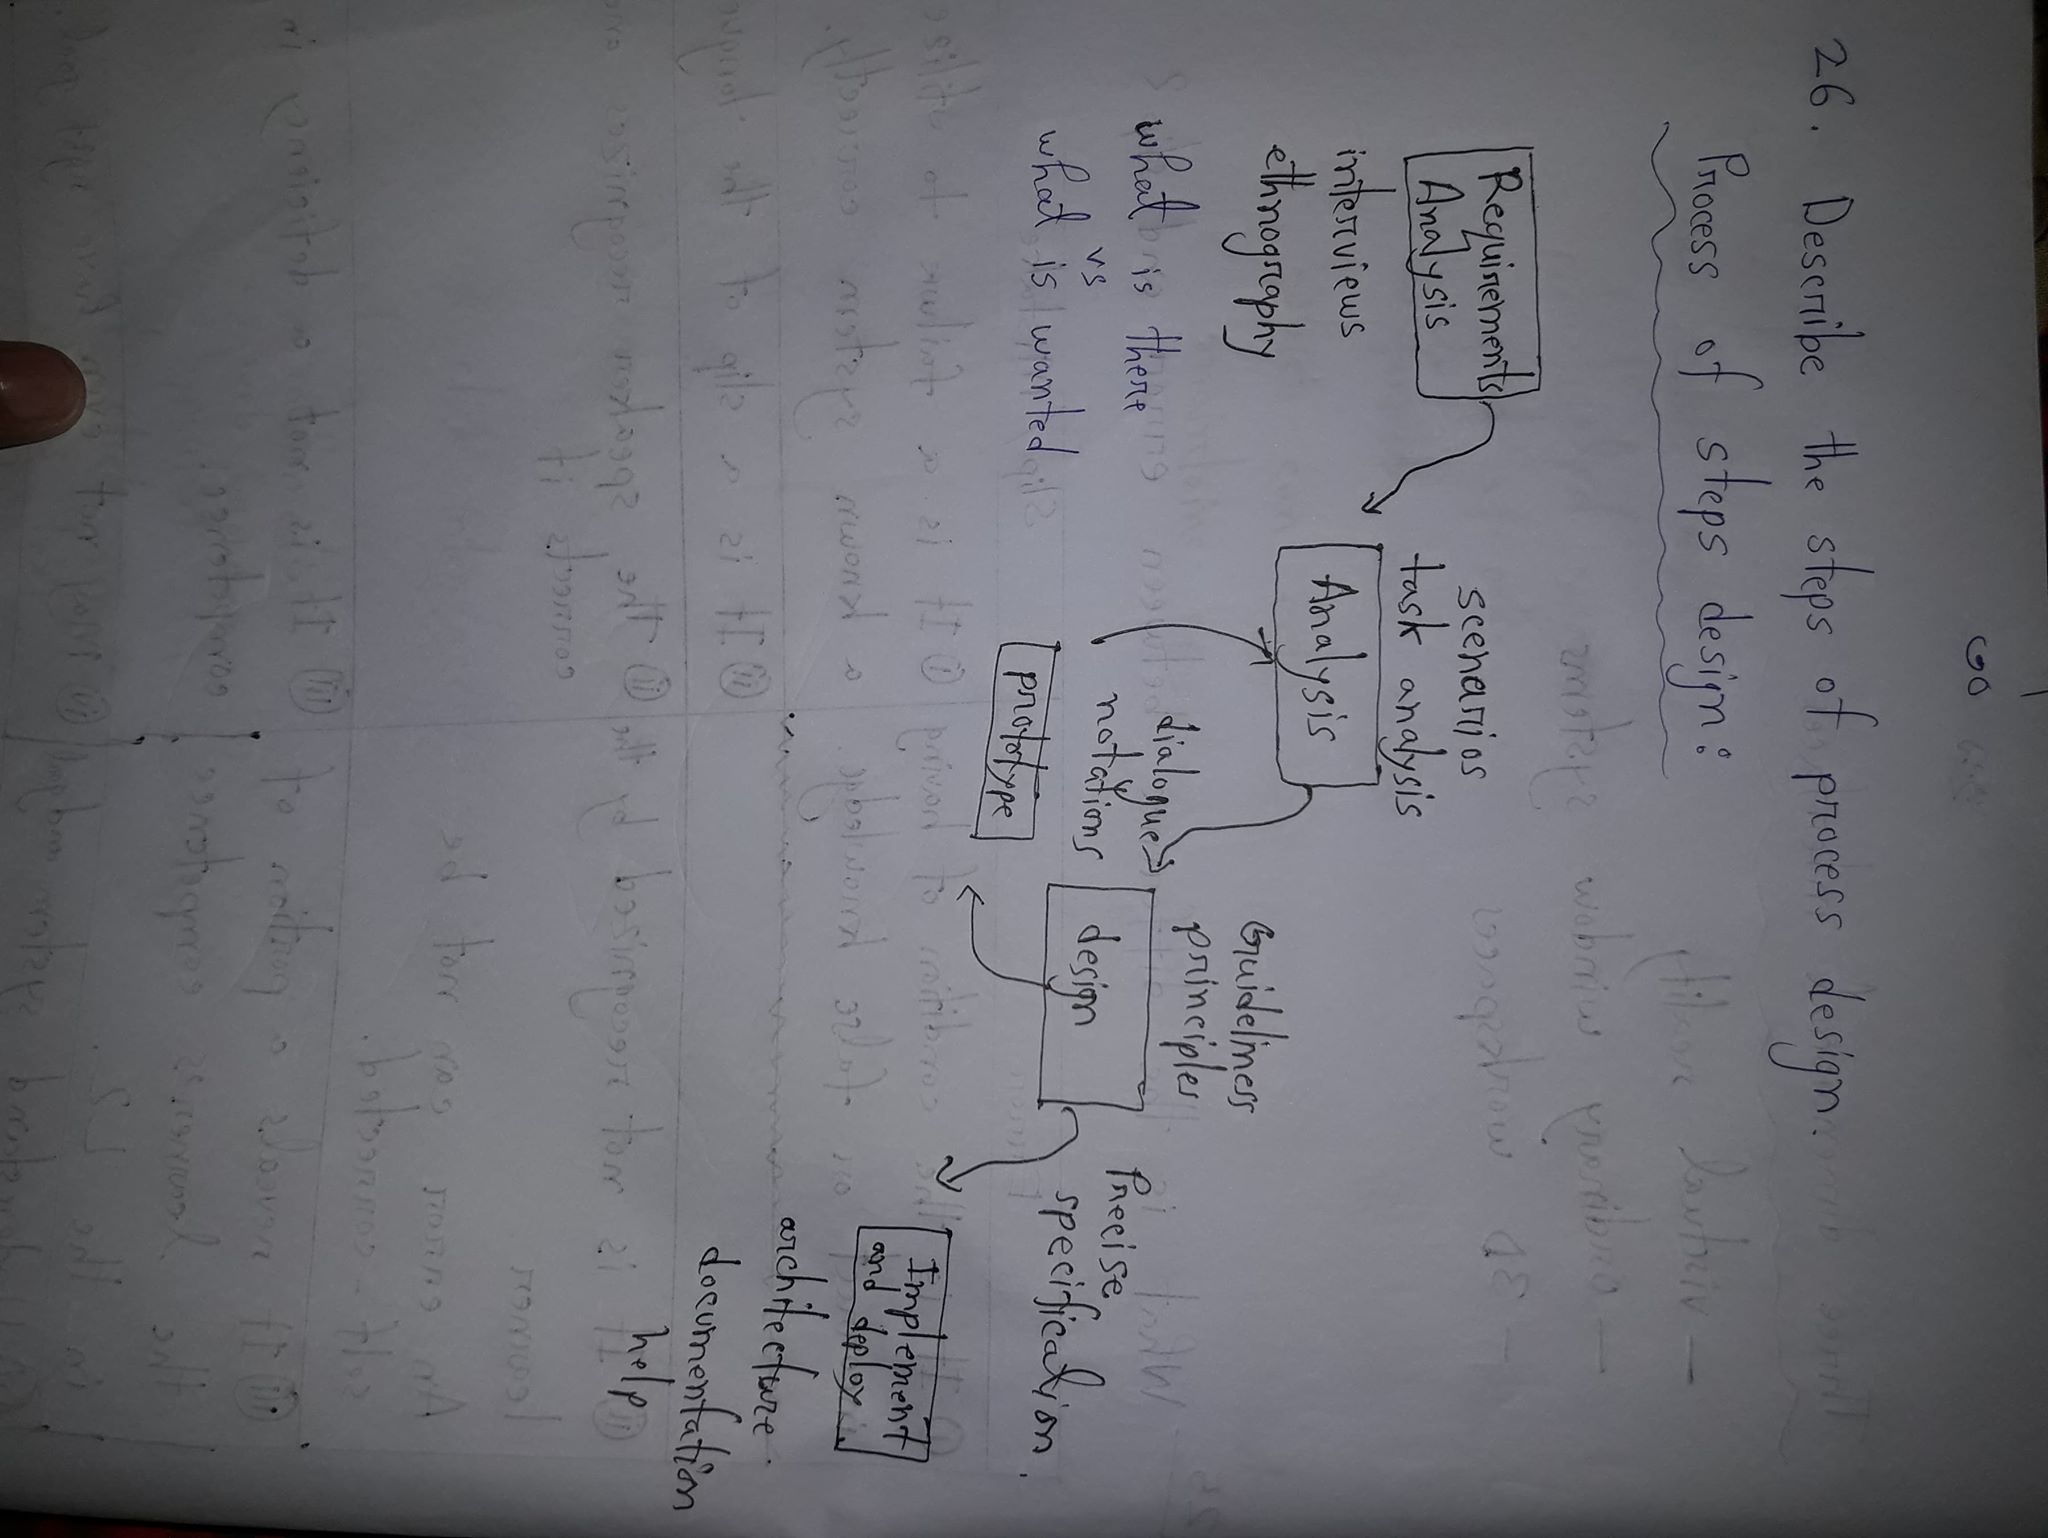 ৩০
26. Describe the steps of process design.
Process of steps design:
Requirements
Analysis
interviews
ethnography
what is there
vs
what is wanted
scenarios
task analysis
Analysis
dialogue
notations
prototype
Guideliness
principles
design
Precise
specification.
Implement
and deploy
architecture
documentation
help